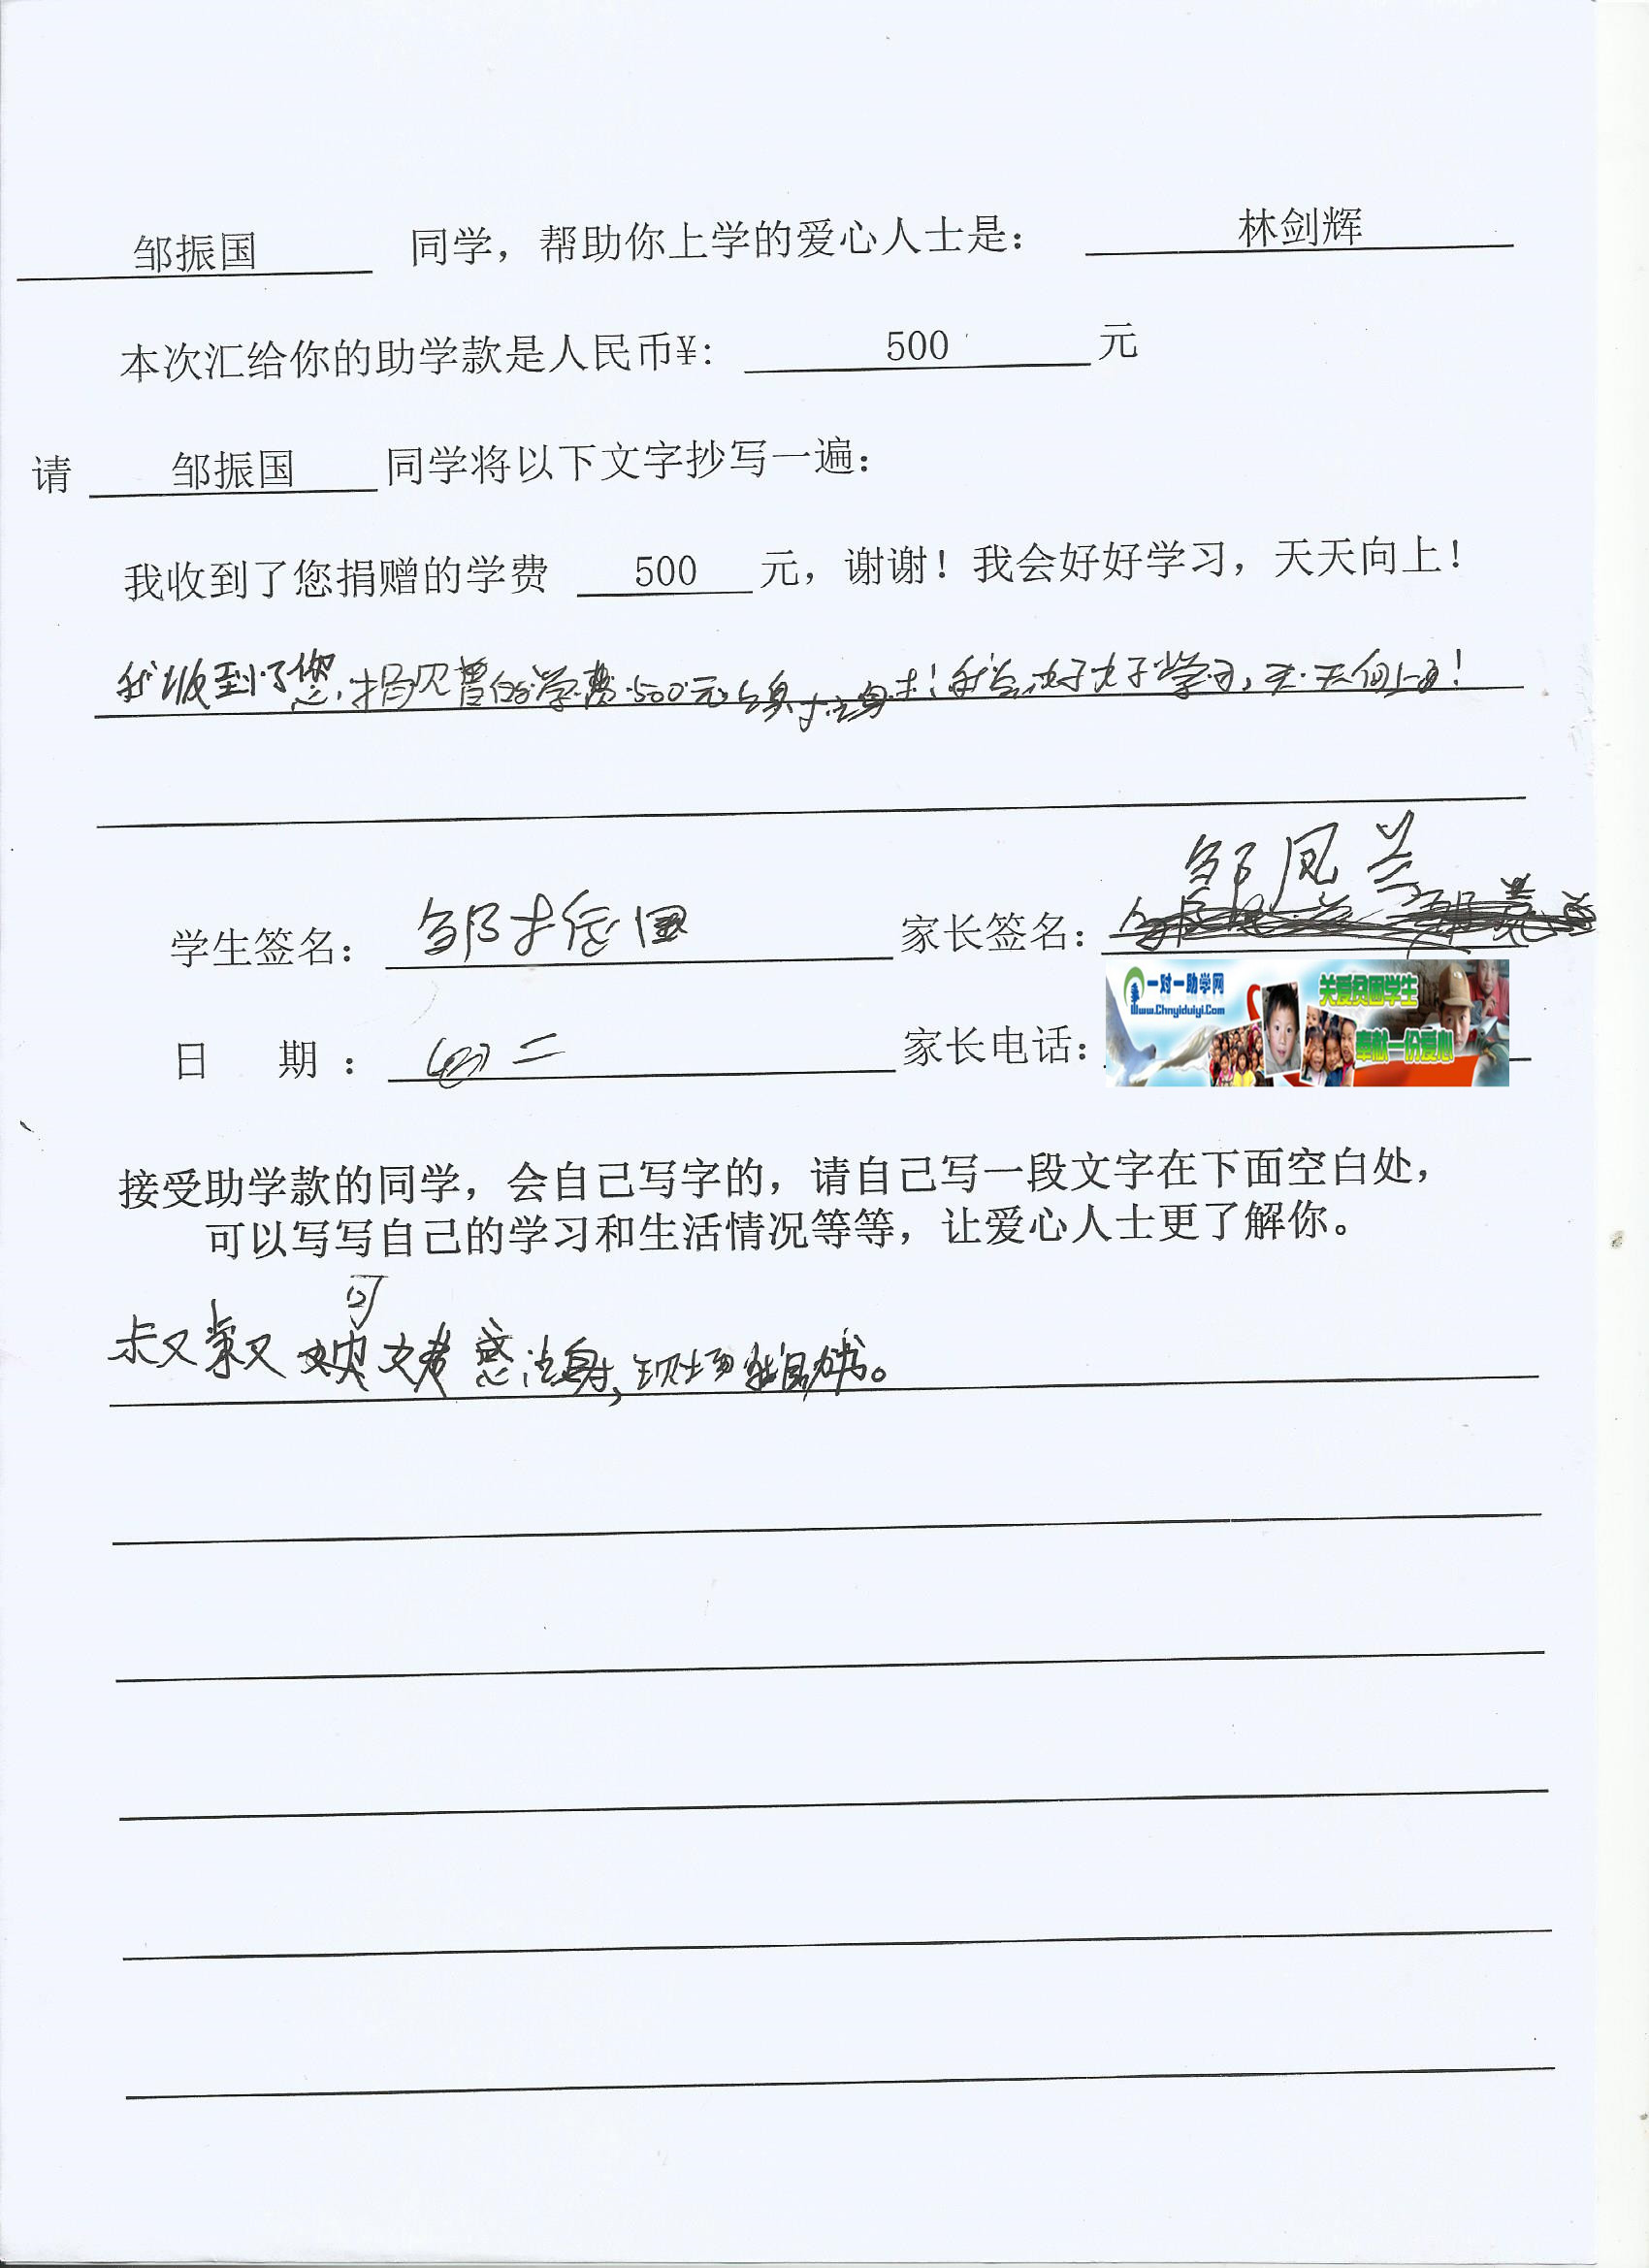 邹振国 同学，帮助你上学的爱心人士是： 林剑辉
本次汇给你的助学款是人民币¥: 500 元
请 邹振国 同学将以下文字抄写一遍：
我收到了您捐赠的学费 500 元，谢谢！我会好好学习，天天向上！
我收到了您捐赠的学费500元谢谢！我会好好学习，天天向上！
学生签名： 邹振国 家长签名： 邹凤兰
一对一助学网
www.Chnyiduiyi.Com
关爱贫困学生
奉献一份爱心
日 期 ： 二 家长电话：
接受助学款的同学，会自己写字的，请自己写一段文字在下面空白处，
可以写写自己的学习和生活情况等等，让爱心人士更了解你。
叔叔 感谢